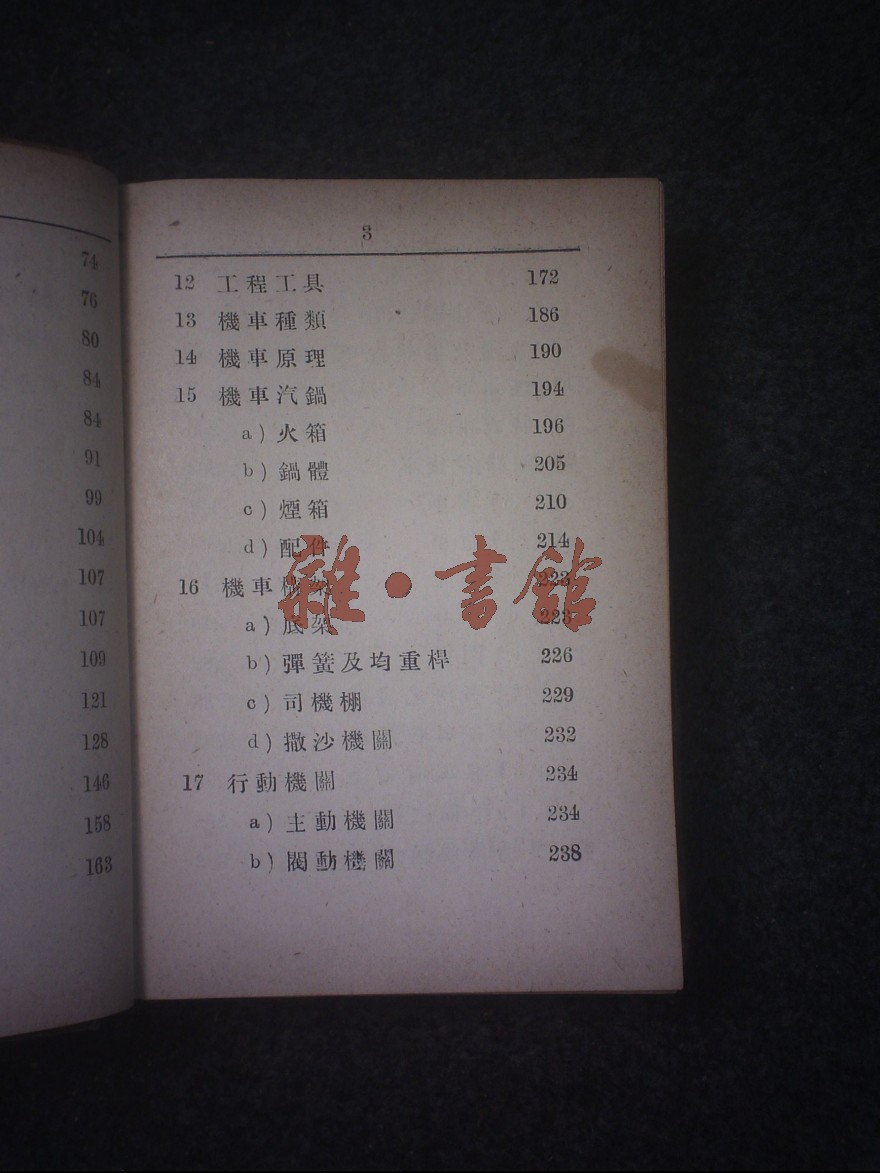 74
76
80
84
84
91
99
104
107
107
109
121
128
146
158
163
3
12 工程工具 172
13 機車種類 186
14 機車原理 190
15 機車汽鍋 194
a) 火箱 196
b) 鍋體 205
c) 煙箱 210
d) 配件 214
16 機車構架 223
a) 底架 223
b) 彈簧及均重桿 226
c) 司機棚 229
d) 撒沙機關 232
17 行動機關 234
a) 主動機關 234
b) 閥動機關 238
雜·書館